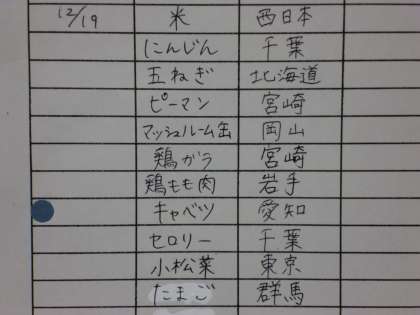 12/19 米 西日本
にんじん 千葉
玉ねぎ 北海道
ピーマン 宮崎
マッシュルーム缶 岡山
鶏がら 宮崎
鶏もも肉 岩手
キャベツ 愛知
セロリー 千葉
小松菜 東京
たまご 群馬